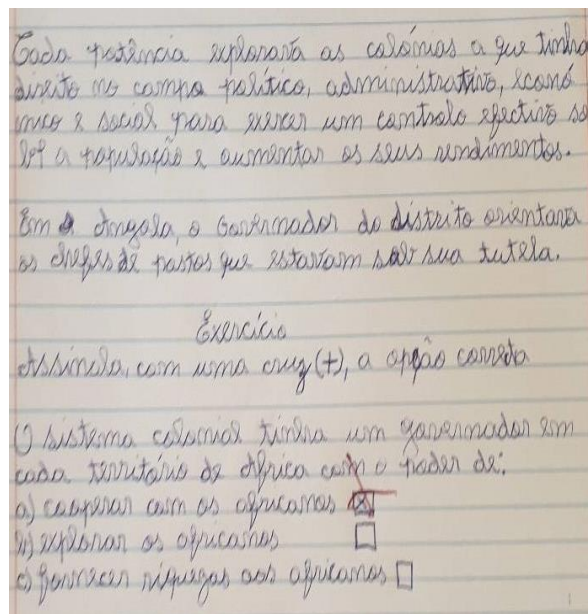 Cada potência explorava as colónias a que tinha
direito no campo político, administrativo, econó
mico e social para exercer um controlo efectivo so
bre a população e aumentar os seus rendimentos.
Em Angola, o Governador do distrito orientava
os chefes de postos que estavam sob sua tutela.
Exercício
Assinala, com uma cruz (+), a opção correta
O sistema colonial tinha um governador em
cada território de África com o poder de:
a) cooperar com os africanos
b) explorar os africanos
c) fornecer riquezas aos africanos